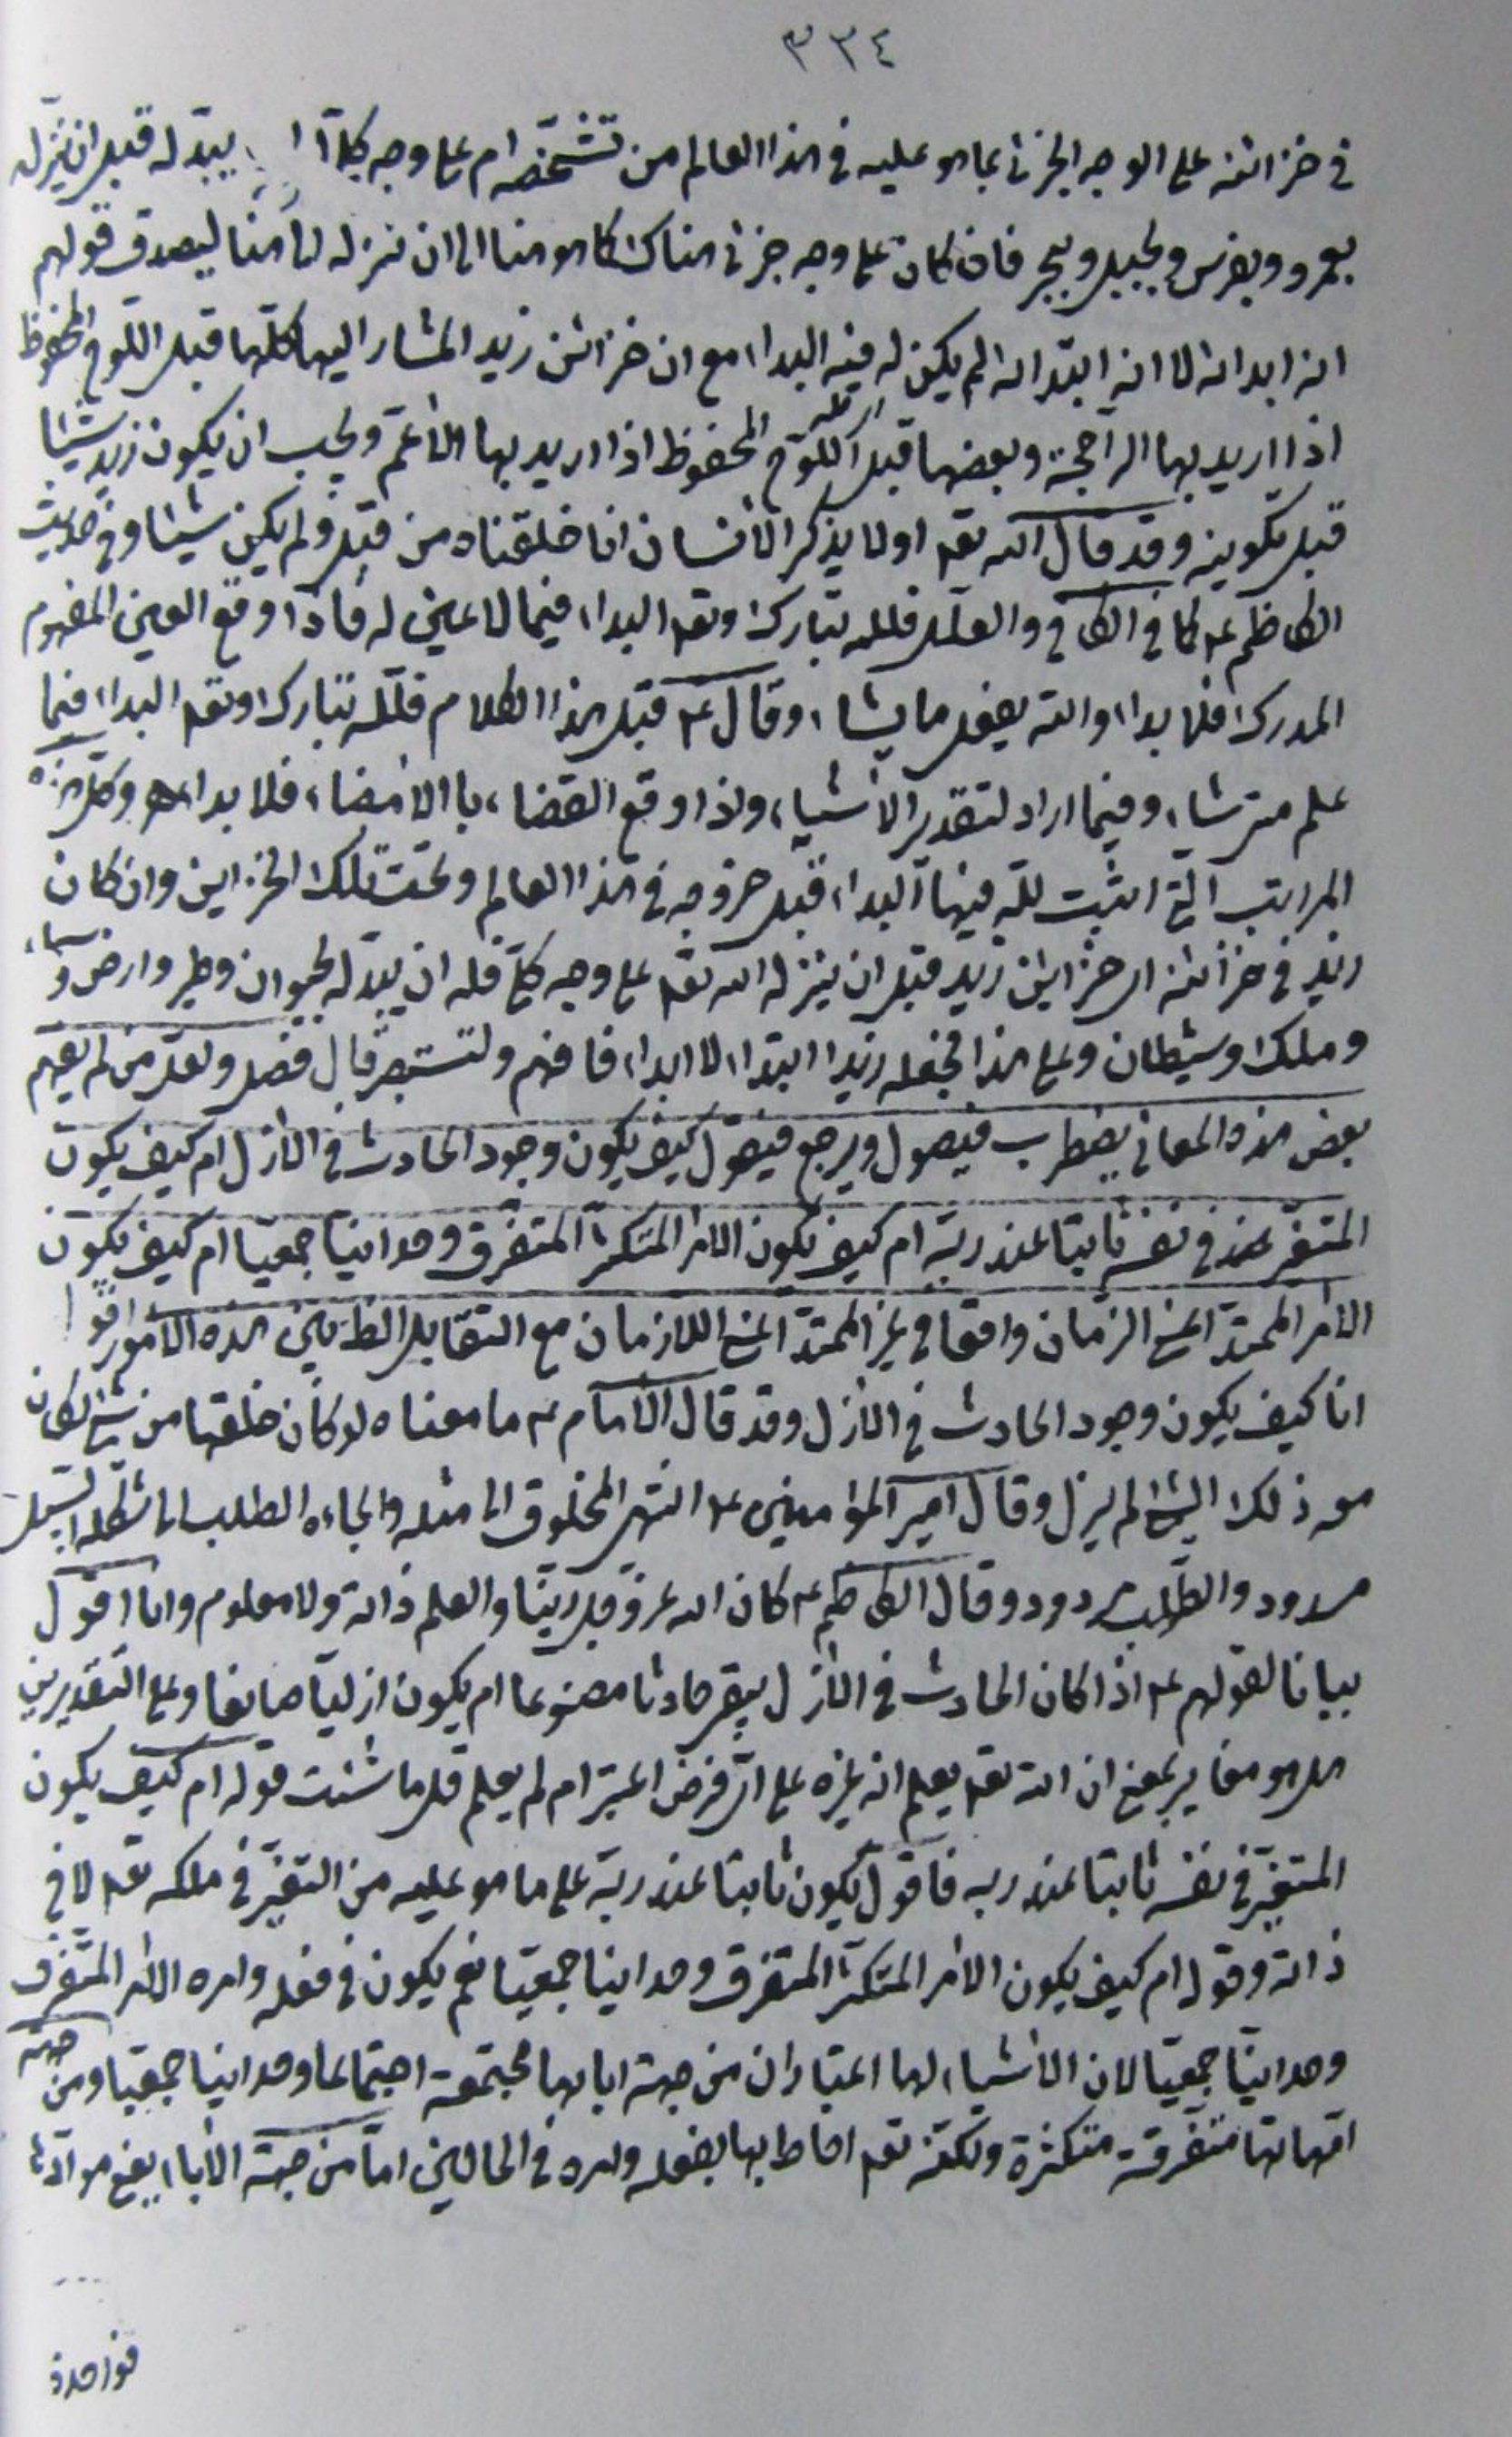 ٣٣٤
في خزائنه على الوجه الجزئي بما هو عليه في هذا العالم من تشخصه ام على وجه كلي يبدله قبل ان ينزله
بعمرو وبفرس وبجبل وببحر فان كان على وجه جزئي هناك كما هو هنا الى ان نزله الى هنا ليصدق قولهم
انه ابداه لا انه ابتداه لم يكن له فيه البداء مع ان خزائن زيد المشار اليها كلها قبل اللوح المحفوظ
اذا اريد بها الراجحة وبعضها قبل اللوح المحفوظ اذا اريد بها الأعم ويجب ان يكون زيد شيئا
قبل تكوينه وقد قال الله تعه اولا يذكر الأنسان انا خلقناه من قبل ولم يكن شيئا وفي حديث
الكاظم ع كما في الكافي والعلل فلله تبارك وتعه البداء فيما لا عين له فاذا وقع العين المفهوم
المدرك فلا بداء والله يفعل ما يشاء وقال ع قبل هذا الكلام فلله تبارك وتعه البداء فيما
علم متى شاء وفيما اراد لتقدير الأشياء واذا وقع القضاء بالأمضاء فلا بداء وكل هذه
المراتب التي اثبت لله فيها البداء قبل خروجه في هذا العالم وتحت تلك الخزاين وان كان
زيد في خزائنه اي خزاين زيد قبل ان ينزله الله تعه على وجه كلي فله ان يبدله بحيوان وطير وارض وسماء
وملك وشيطان وعلى هذا فجعله زيدا ابتداء لا ابداء فافهم ولتستبصر قال فصل ولعل من لم يفهم
بعض هذه المعاني يضطرب فيصول ويرجع فيقول كيف يكون وجود الحادث في الأزل ام كيف يكون
المتغير في نفسه ثابتا عند ربه ام كيف تكون الامر المتكثر المتفرق وحدانيا جمعيا ام كيف يكون
الأمر الممتد اعني الزمان واقعا في غير الممتد اعني اللازمان مع التقابل الظ بين هذه الأمور اقول
انا كيف يكون وجود الحادث في الأزل وقد قال الأمام ع ما معناه لو كان خلقها من شيء لكان
معه ذلك الشيء لم يزل وقال امير المؤمنين ع انتهى المخلوق الى مثله والجاءه الطلب الى شكله السبيل
مسدود والطلب مردود وقال الكاظم ع كان الله عز وجل ربنا والعلم ذاته ولا معلوم وانا اقول
بيانا لقولهم ع اذا كان الحادث في الأزل يبقى حادثا مصنوعا ام يكون ازليا صانعا وعلى التقديرين
هل هو مغاير بمعنى ان الله تعه يعلم انه غيره على اي فرض اعتبر ام لم يعلم قل ما شئت قوله ام كيف يكون
المتغير في نفسه ثابتا عند ربه فاقول يكون ثابتا عند ربه على ما هو عليه من التغير في ملكه تعه لا في
ذاته وقوله ام كيف يكون الامر المتكثر المتفرق وحدانيا جمعيا نعم يكون في فعله وامره الأمر المتفرق
وحدانيا جمعيا لان الأشياء لها اعتباران من جهة ابائها مجتمعة اجتماعا وحدانيا جمعيا ومن جهة
امهاتها متفرقة متكثرة ولكنه تعه احاط بها بفعله وامره في الحالين اما من جهة الأباء يعني موادها
فواحدة